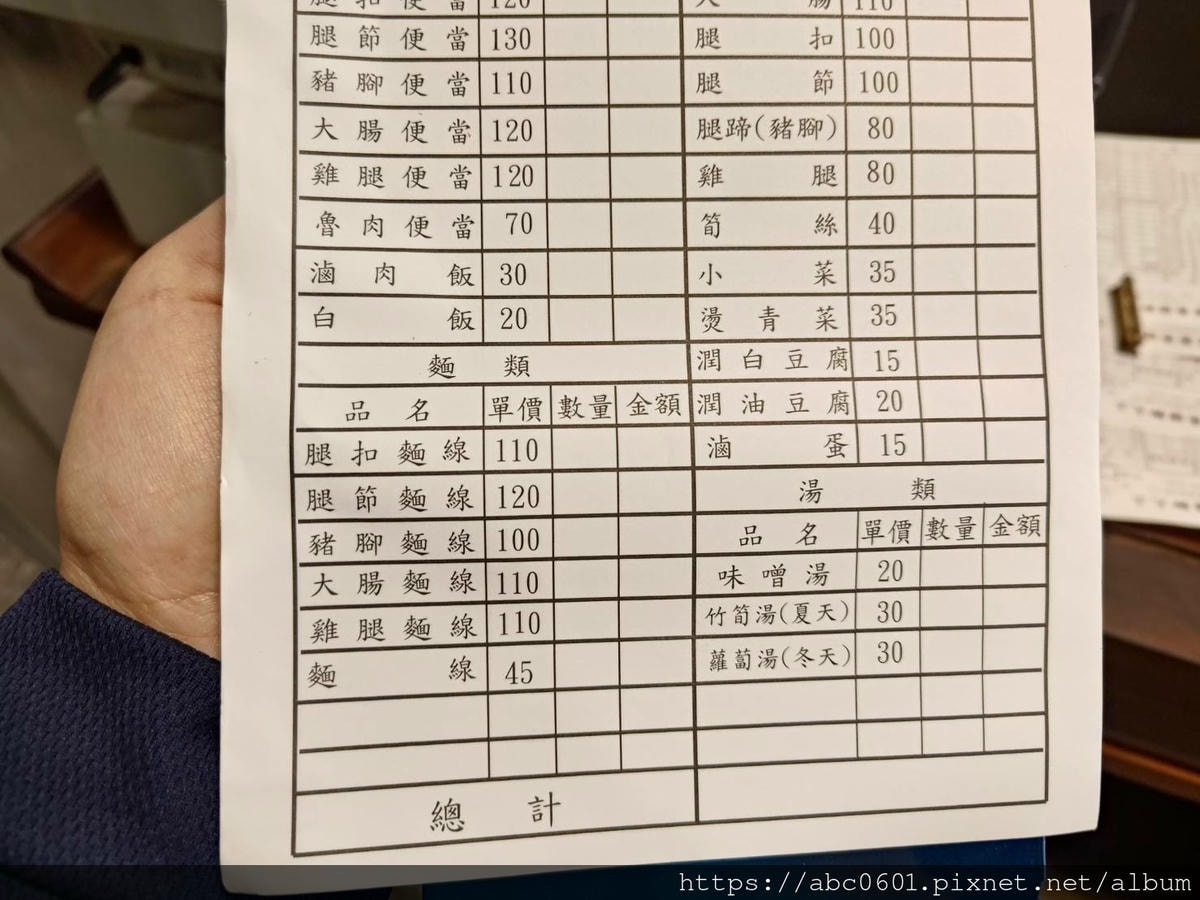 腿扣便當 120
腿節便當 130
豬腳便當 110
大腸便當 120
雞腿便當 120
魯肉便當 70
滷肉飯 30
白飯 20
麵類
品名 單價 數量 金額
腿扣麵線 110
腿節麵線 120
豬腳麵線 100
大腸麵線 110
雞腿麵線 110
麵線 45
總計
大腸 110
腿扣 100
腿節 100
腿蹄(豬腳) 80
雞腿 80
筍絲 40
小菜 35
燙青菜 35
潤白豆腐 15
潤油豆腐 20
滷蛋 15
湯類
品名 單價 數量 金額
味噌湯 20
竹筍湯(夏天) 30
蘿蔔湯(冬天) 30
https://abc0601.pixnet.net/album